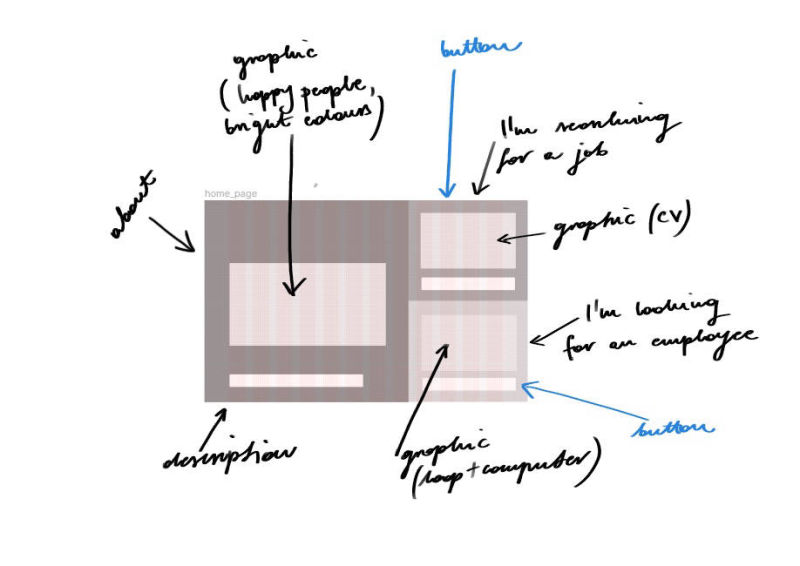 graphic
(happy people,
bright colours)
button
I'm searching
for a job
about
home_page
graphic (cv)
I'm looking
for an employee
description
graphic
(loop + computer)
button